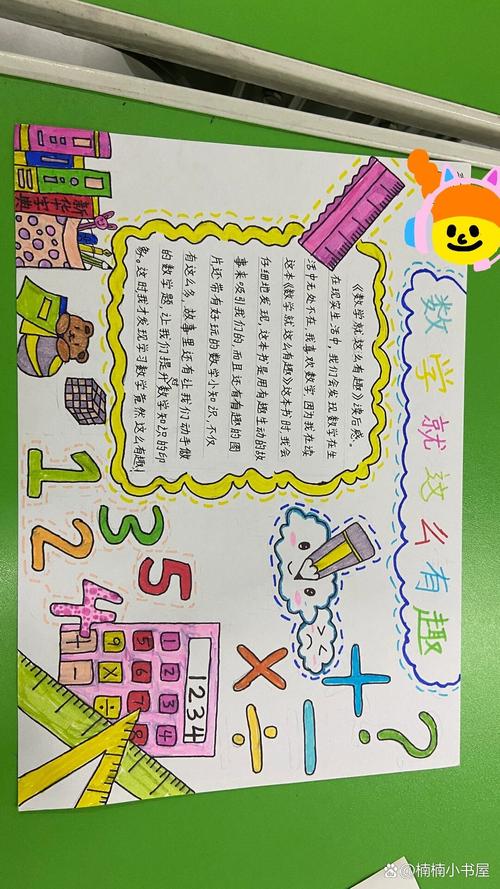 数学就这么有趣
《数学就这么有趣》读后感。
在现实生活中,我们会发现数学在生
活中无处不在,我喜欢数学,因为我在读
这本《数学就这么有趣》这本书时,我会
仔细地发现,这本书是用有趣生动的故
事来吸引我们的,而且还有有趣的图
片还带有好玩的数学小知识,不仅
有这么多,故事里还有让我们动手做
的数学题,让我们提升对数学知识的印
象。这时我才发现学习数学竟然这么有趣!
新华字典
1
2
3
4
5
1234
1 2 3 4
5 6 7 8
9 0
÷
+
-
×
+
÷
−
?
楠楠小书屋